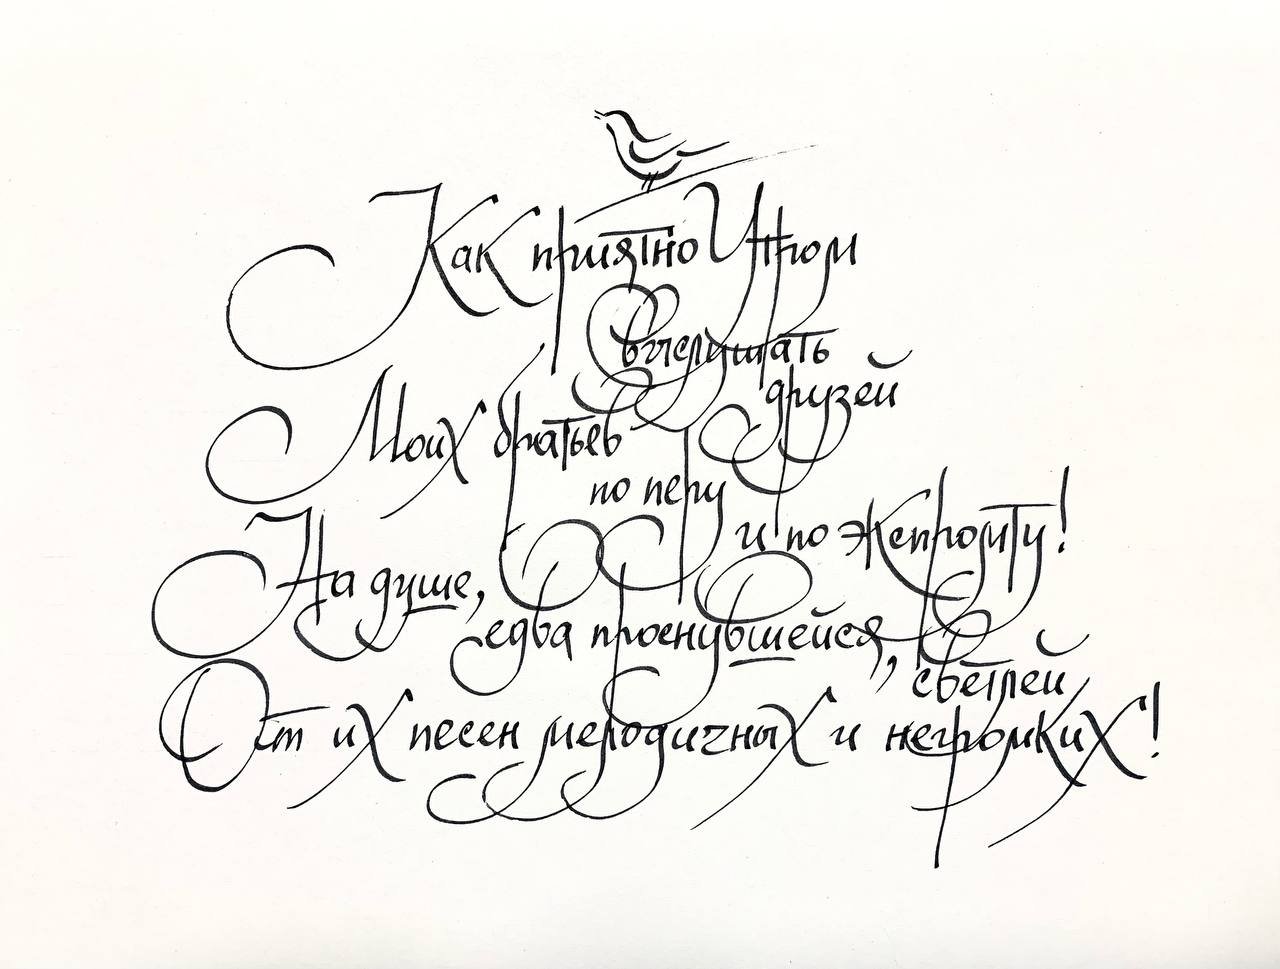 Как приятно Утром
выслушать
друзей
Моих братьев
по перу
и по экспромту!
На душе,
едва проснувшейся,
светлей
От их песен мелодичных и негромких!